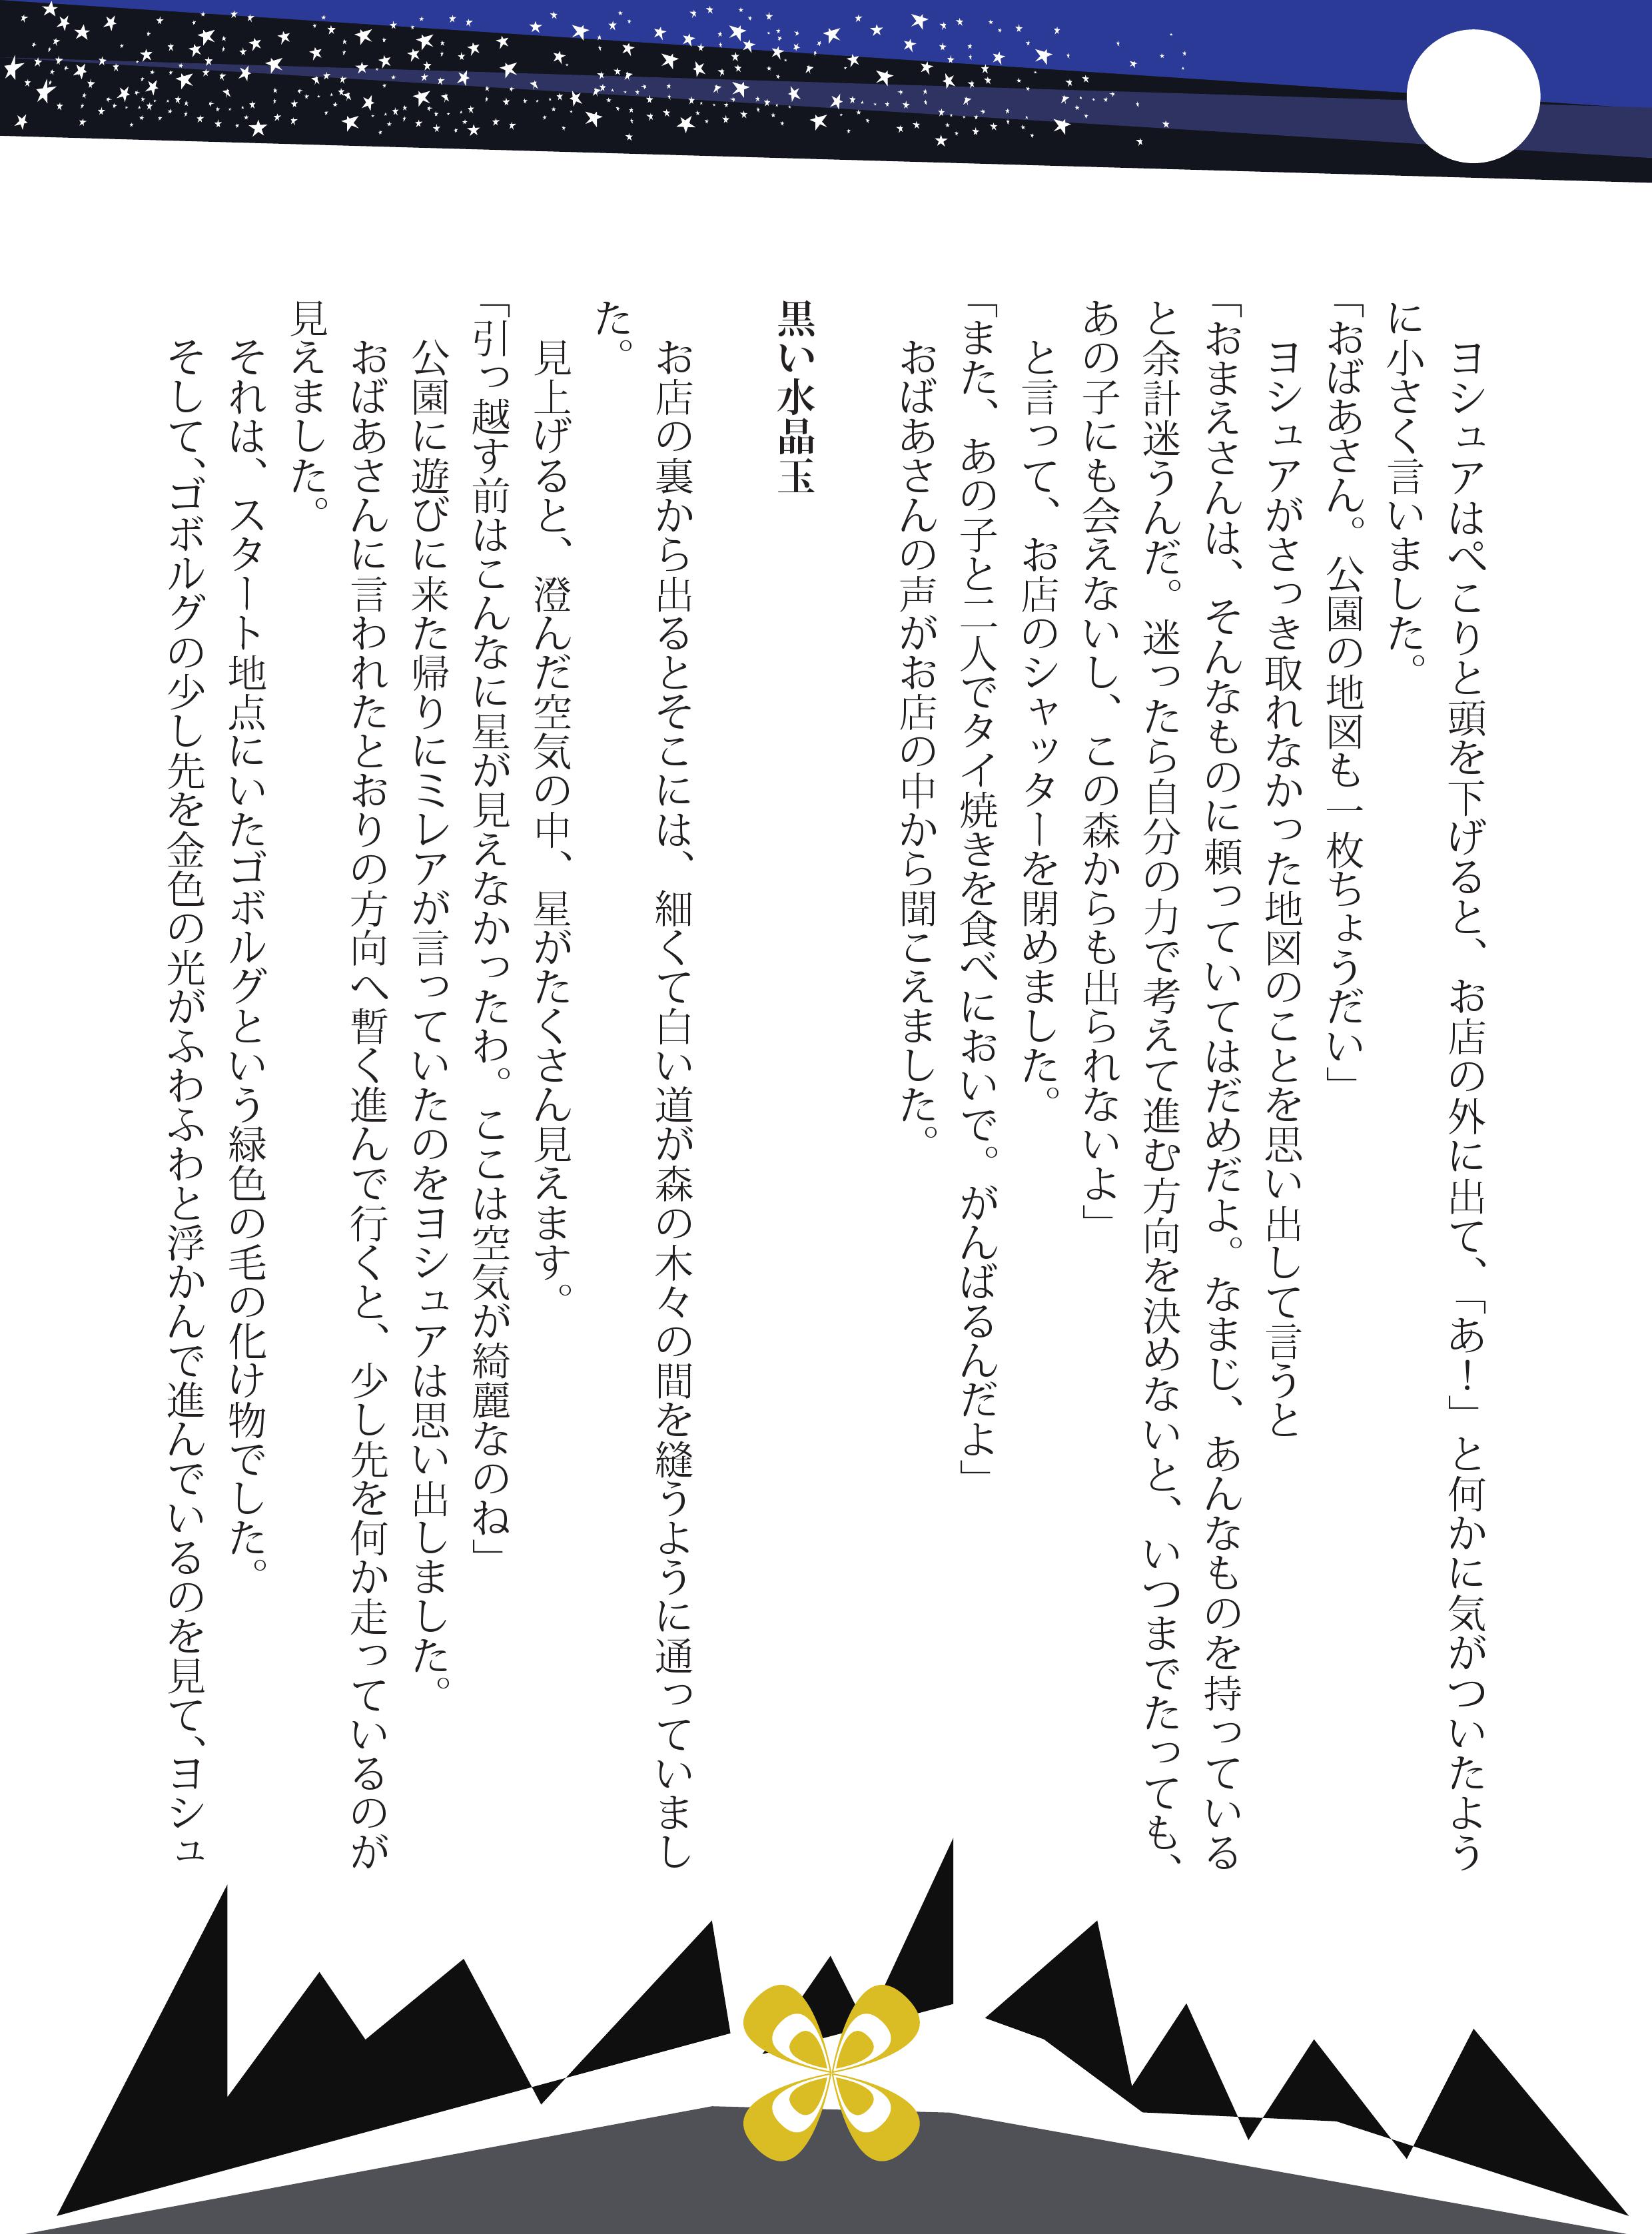 ヨシュアはぺこりと頭を下げると、お店の外に出て、「あ！」と何かに気がついたよう
に小さく言いました。
「おばあさん。公園の地図も一枚ちょうだい」
　ヨシュアがさっき取れなかった地図のことを思い出して言うと
「おまえさんは、そんなものに頼っていてはだめだよ。なまじ、あんなものを持っている
と余計迷うんだ。迷ったら自分の力で考えて進む方向を決めないと、いつまでたっても、
あの子にも会えないし、この森からも出られないよ」
　と言って、お店のシャッターを閉めました。
「また、あの子と二人でタイ焼きを食べにおいで。がんばるんだよ」
　おばあさんの声がお店の中から聞こえました。
黒い水晶玉
　お店の裏から出るとそこには、細くて白い道が森の木々の間を縫うように通っていまし
た。
　見上げると、澄んだ空気の中、星がたくさん見えます。
「引っ越す前はこんなに星が見えなかったわ。ここは空気が綺麗なのね」
　公園に遊びに来た帰りにミレアが言っていたのをヨシュアは思い出しました。
　おばあさんに言われたとおりの方向へ暫く進んで行くと、少し先を何か走っているのが
見えました。
　それは、スタート地点にいたゴボルグという緑色の毛の化け物でした。
　そして、ゴボルグの少し先を金色の光がふわふわと浮かんで進んでいるのを見て、ヨシュ